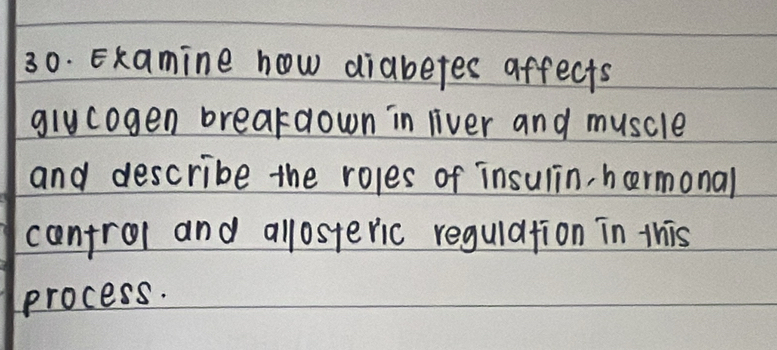 30. Examine how diabetes affects
glycogen breakdown in liver and muscle
and describe the roles of insulin, hormonal
control and allosteric regulation in this
process.